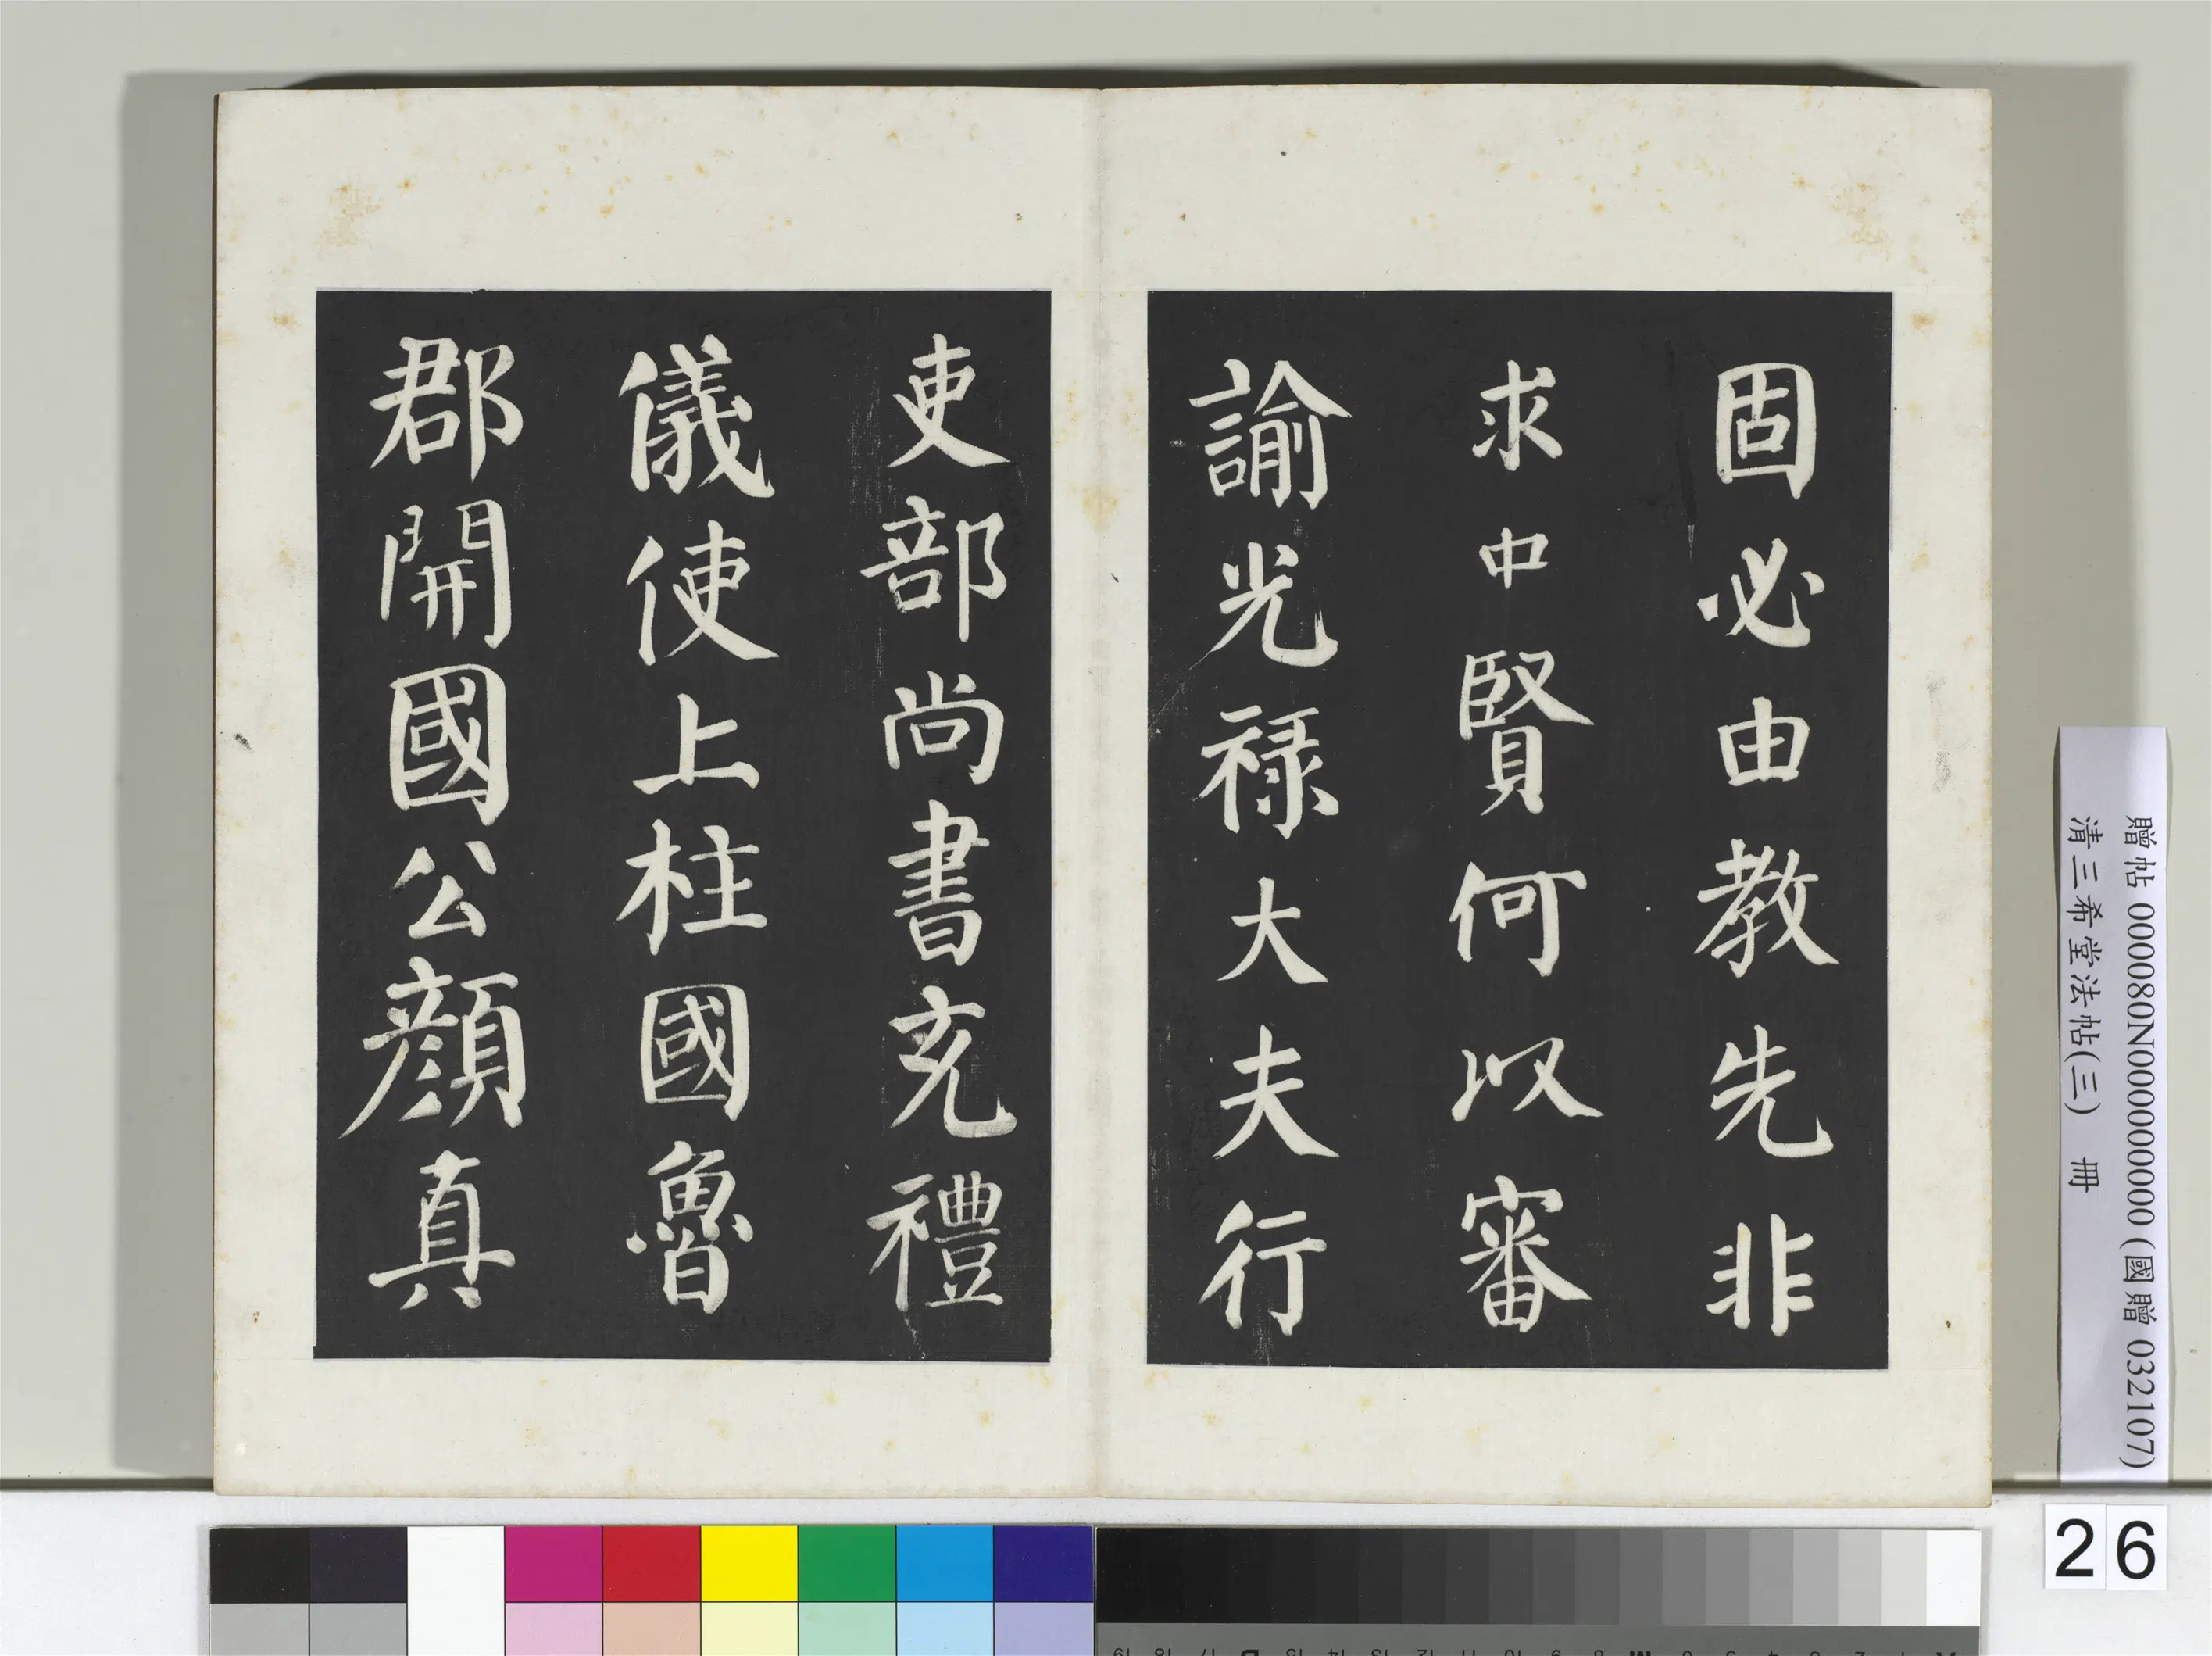 固必由教先非
求中賢何以審
諭光祿大夫行
吏部尚書充禮
儀使上柱國魯
郡開國公顏真
贈帖 000080N000000000 (國贈 032107)
清三希堂法帖(三) 冊
26